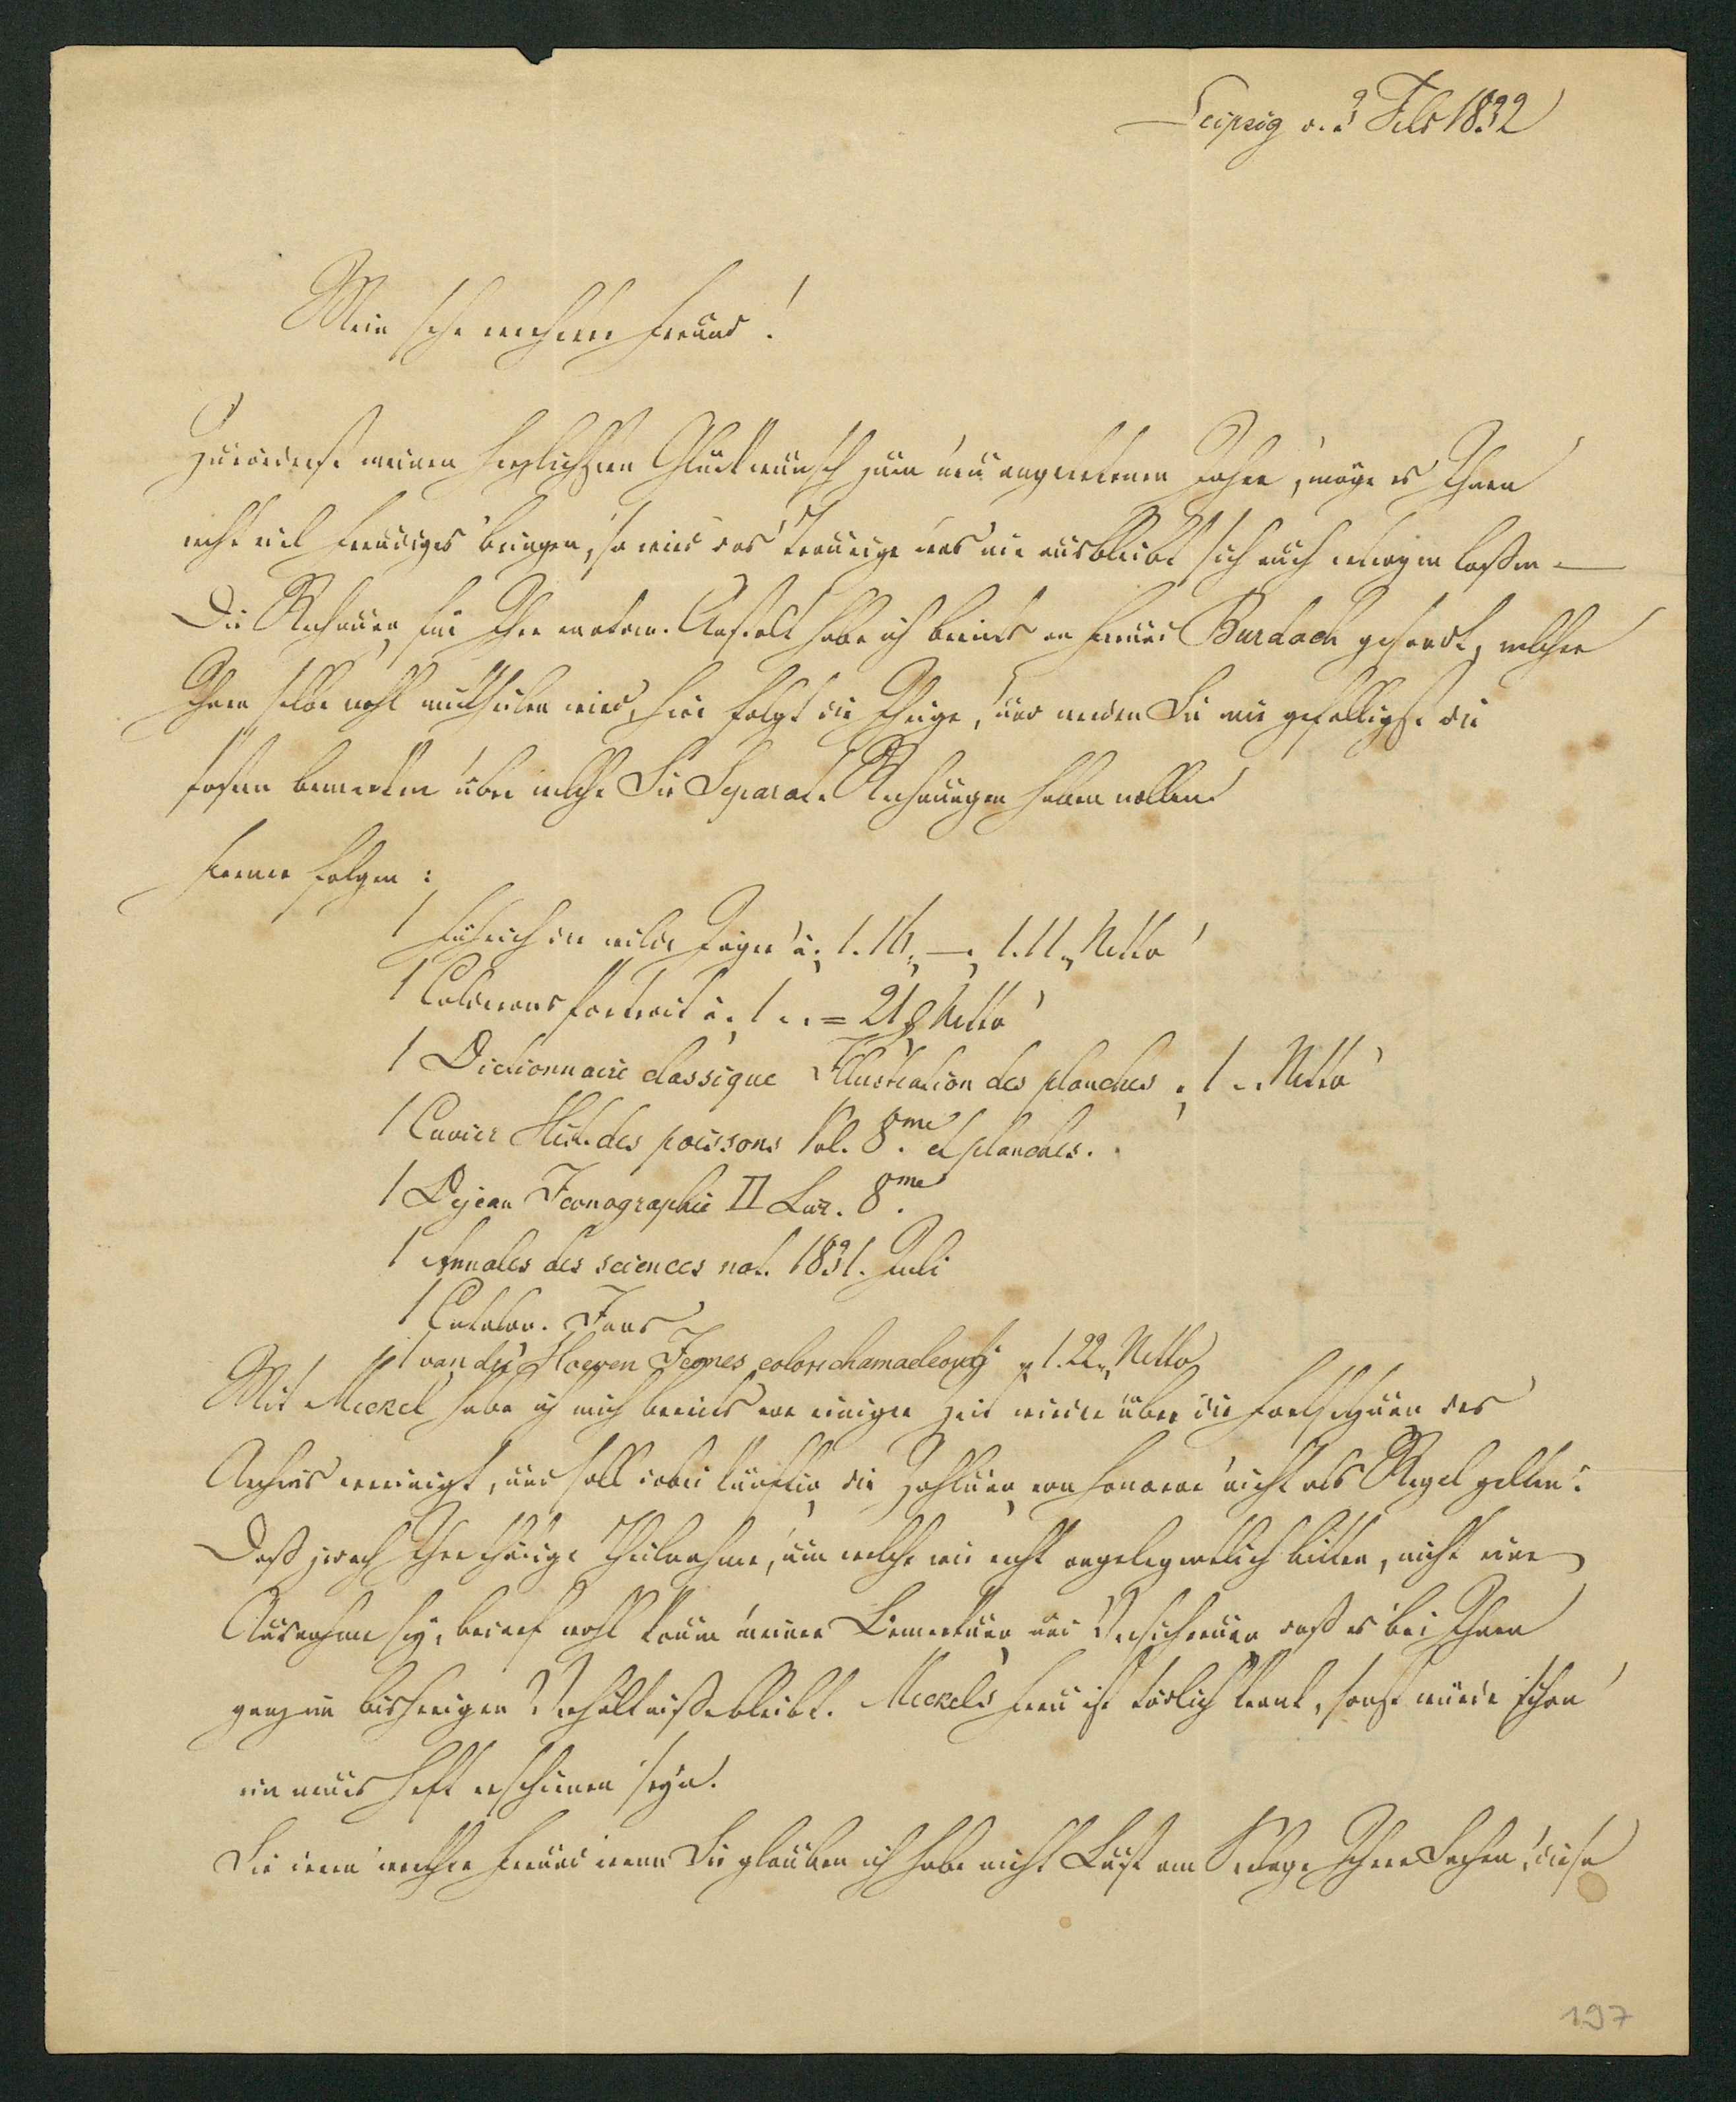 Leipzig d. 3 Febr 1832
Mein sehr werther Freund!
Zuvörderst meinen herzlichsten Glückwunsch zum neu angetretenen Jahre, möge es Ihnen
recht viel Freudiges bringen, so wird das Traurige was nie ausbleibt sich auch ertragen laßen —
Die Rechnung für Ihre anatom. Anstalt habe ich bereits an Freund Burdach gesandt, welcher
Ihnen selbe wohl mittheilen wird, hier folgt die Ihrige, und werden Sie mir gefälligst die
Posten bemerken über welche Sie Separate Rechnungen haben wollen.
Ferner folgen:
1 der wilde Jäger à 1. 16. — 1. 11. Netto
1 Portrait à 1 .. = 21 g Netto
1 Dictionnaire classique Illustration des planches 1 .. Netto
1 Cuvier Hist. des poissons Vol. 8.me et planches.
1 Dejean Iconographie II Livr. 8.me
1 Annales des sciences nat. 1831. Juli
1 Catalon. Fans
1 van der Hoeven Icones color. chamaeleontis 1. 22. Netto
Mit Meckel habe ich mich bereits vor einiger Zeit wieder über die Fortsetzung des
Archivs vereinigt, und soll dabei künftig die Zahlung von Honorar nicht als Regel gelten.
Daß jedoch Ihre thätige Theilnahme, um welche wir recht angelegentlich bitten, nicht eine
Ausnahme sey, bedarf wohl kaum meiner Bemerkung und Versicherung daß es bei Ihnen
ganz im bisherigen Verhältniße bleibt. Meckels Frau ist tödlich krank, sonst würde schon
ein neues Heft erschienen seyn.
Sie irren werther Freund wenn Sie glauben ich habe nicht Lust am Verlage Ihrer Sachen, diese
197